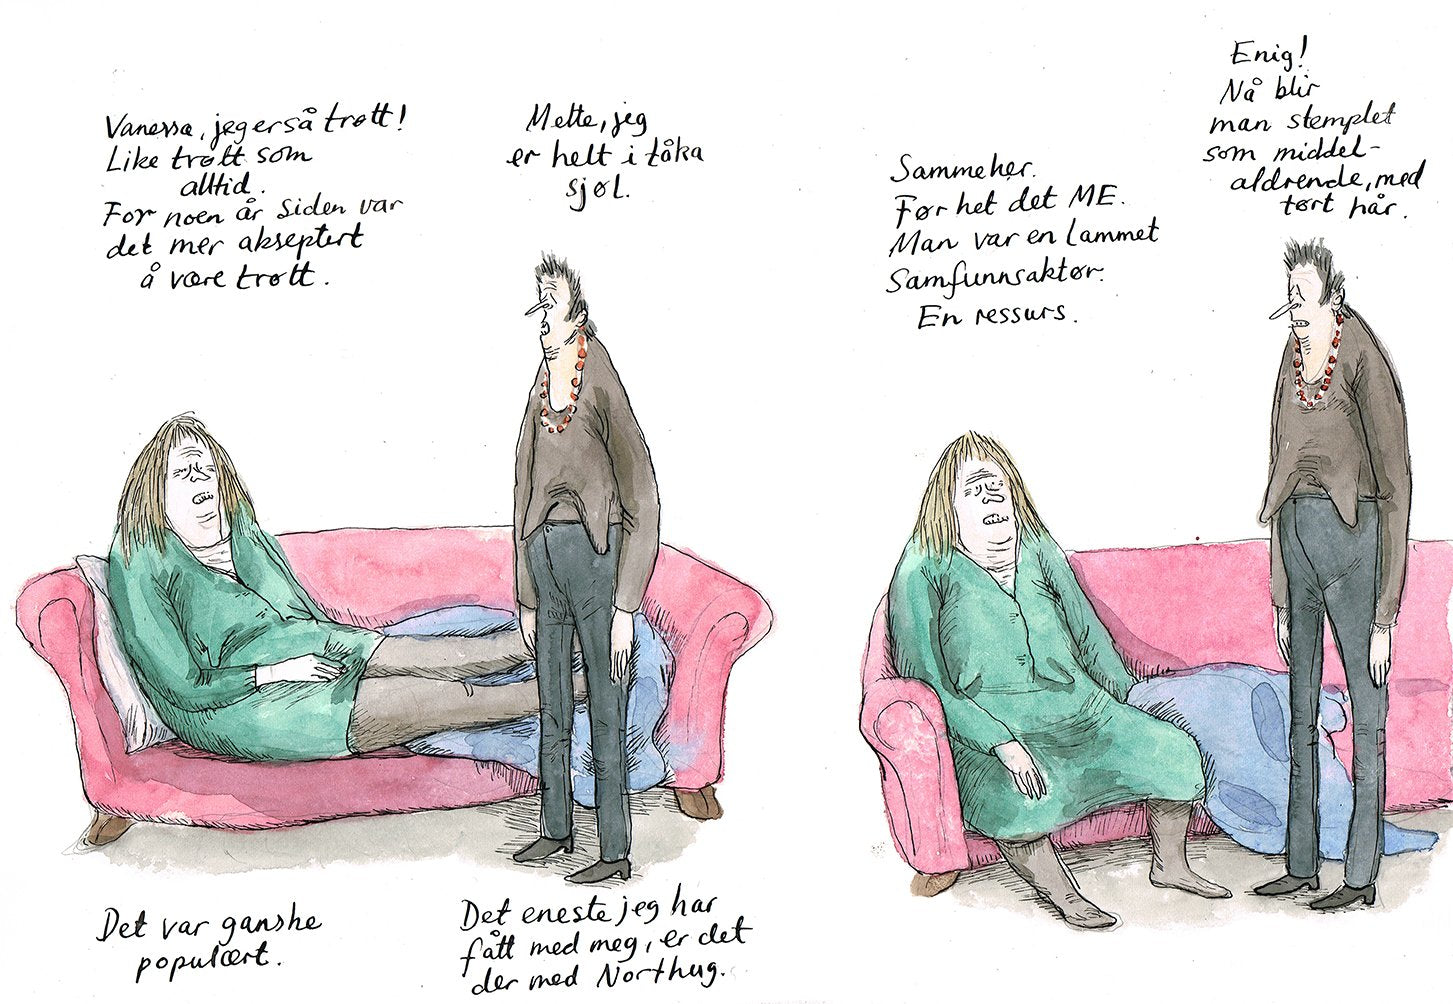 Vanessa, jeg er så trøtt!
Like trøtt som
alltid.
For noen år siden var
det mer akseptert
å være trøtt.
Mette, jeg
er helt i tåka
sjøl.
Det var ganske
populært.
Det eneste jeg har
fått med meg, er det
der med Northug.
Samme her.
Før het det ME.
Man var en lammet
samfunnsaktør.
En ressurs.
Enig!
Nå blir
man stemplet
som middel-
aldrende, med
tørt hår.